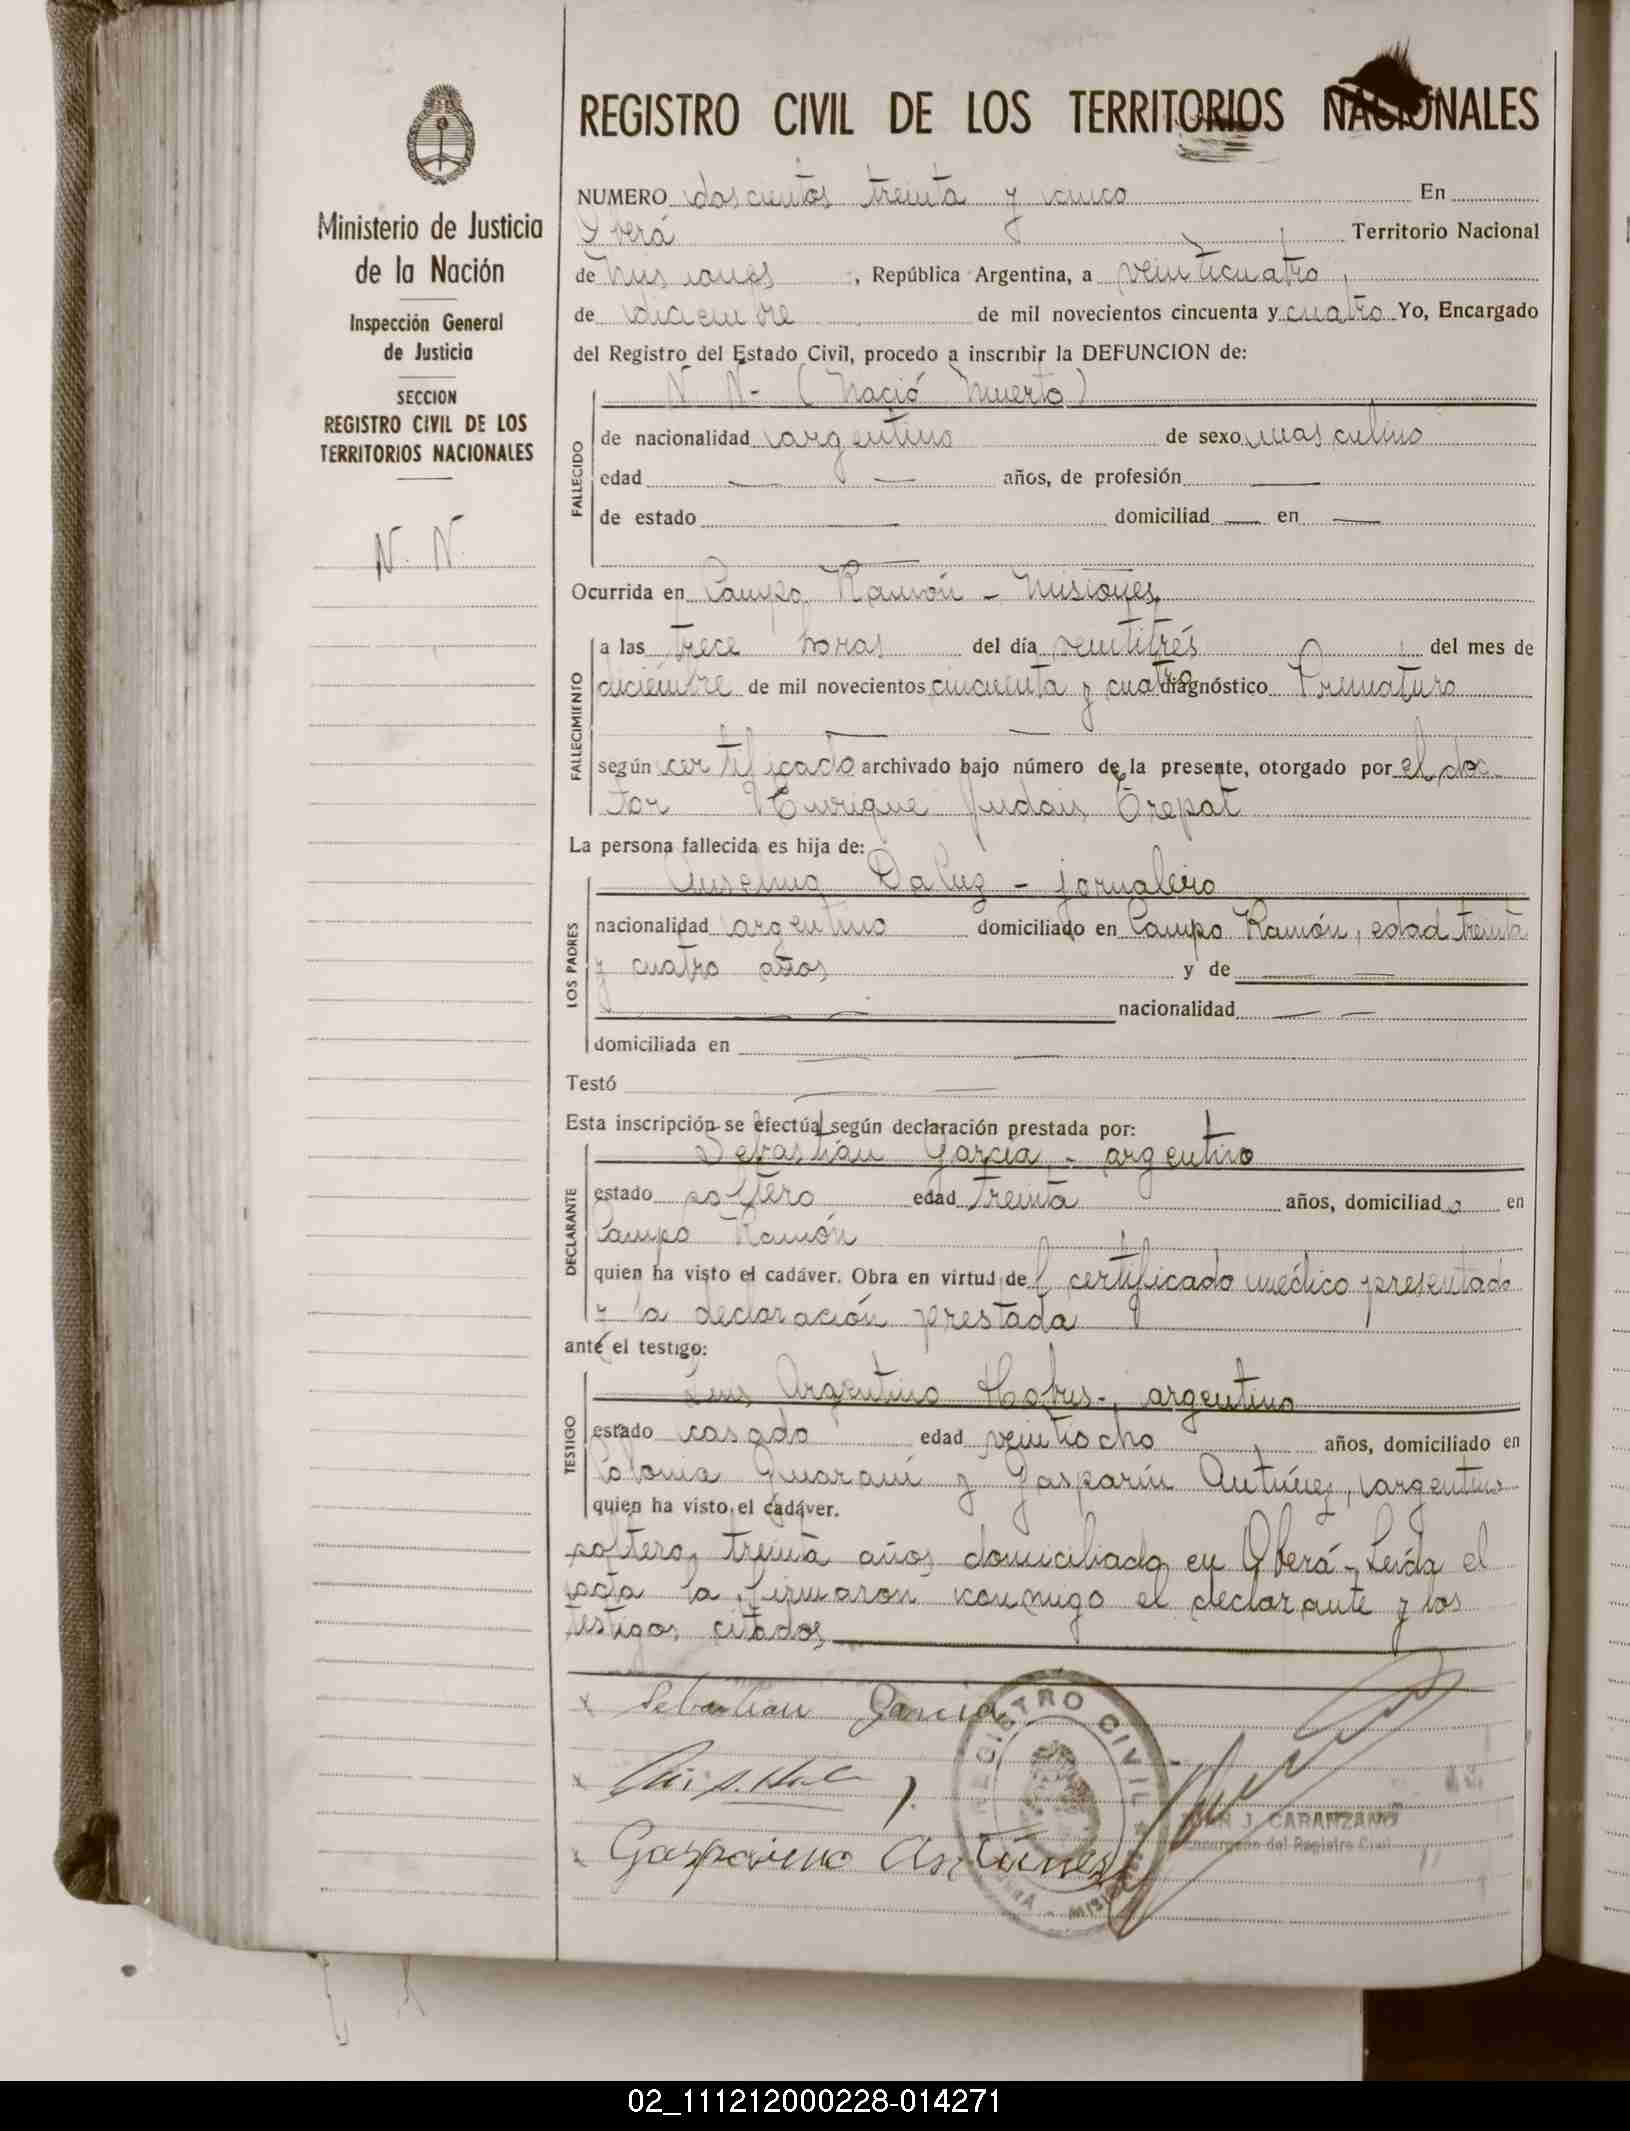 REGISTRO CIVIL DE LOS TERRITORIOS NACIONALES
Ministerio de Justicia
de la Nación
Inspección General
de Justicia
SECCION
REGISTRO CIVIL DE LOS
TERRITORIOS NACIONALES
N. N.
NUMERO doscientos treinta y cinco En
Oberá Territorio Nacional
de Misiones, República Argentina, a veinticuatro
de diciembre de mil novecientos cincuenta y cuatro Yo, Encargado
del Registro del Estado Civil, procedo a inscribir la DEFUNCION de:
N N - (Nació Muerto)
FALLECIDO
de nacionalidad argentino de sexo masculino
edad — — años, de profesión —
de estado — domiciliad — en —
Ocurrida en Campo Ramón - Misiones
FALLECIMIENTO
a las trece horas del día veintitrés del mes de
diciembre de mil novecientos cincuenta y cuatro diagnóstico Prematuro
según certificado archivado bajo número de la presente, otorgado por el doc
tor Enrique Judais Orepat
La persona fallecida es hija de:
LOS PADRES
Anselmo Da Luz - jornalero
nacionalidad argentino domiciliado en Campo Ramón, edad treinta
y cuatro años y de — —
— — nacionalidad — —
domiciliada en — —
Testó — —
Esta inscripción se efectúa según declaración prestada por:
DECLARANTE
Sebastián García - argentino
estado soltero edad treinta años, domiciliado en
Campo Ramón
quien ha visto el cadáver. Obra en virtud del certificado médico presentado
y la declaración prestada
ante el testigo:
TESTIGO
Luis Argentino Hobus-, argentino
estado casado edad veintiocho años, domiciliado en
Colonia Guaraní y Gasparín Antúnez, argentino
quien ha visto el cadáver.
soltero, treinta años domiciliado en Oberá - Leída el
acta la firmaron conmigo el declarante y los
testigos citados
x Sebastian Garcia
x Luis A.
x Gasparino Antunez
REGISTRO CIVIL
OBERA - MISIONES
JUAN J. CARANZANO
Encargado del Registro Civil
02_111212000228-014271